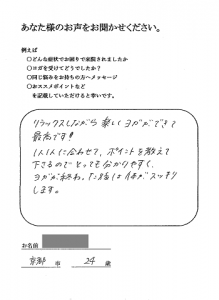 あなた様のお声をお聞かせください。
例えば
○どんな症状でお困りで来院されましたか
○ヨガを受けてどうでしたか?
○同じ悩みをお持ちの方へメッセージ
○おススメポイントなど
を記載していただけると幸いです。
リラックスしながら楽しくヨガができて
最高です!!
1人1人に合わせて、ポイントを教えて
下さるのでとっても分かりやすく、
ヨガが終わった後は体がスッキリ
します。
お名前
京都 市 24 歳